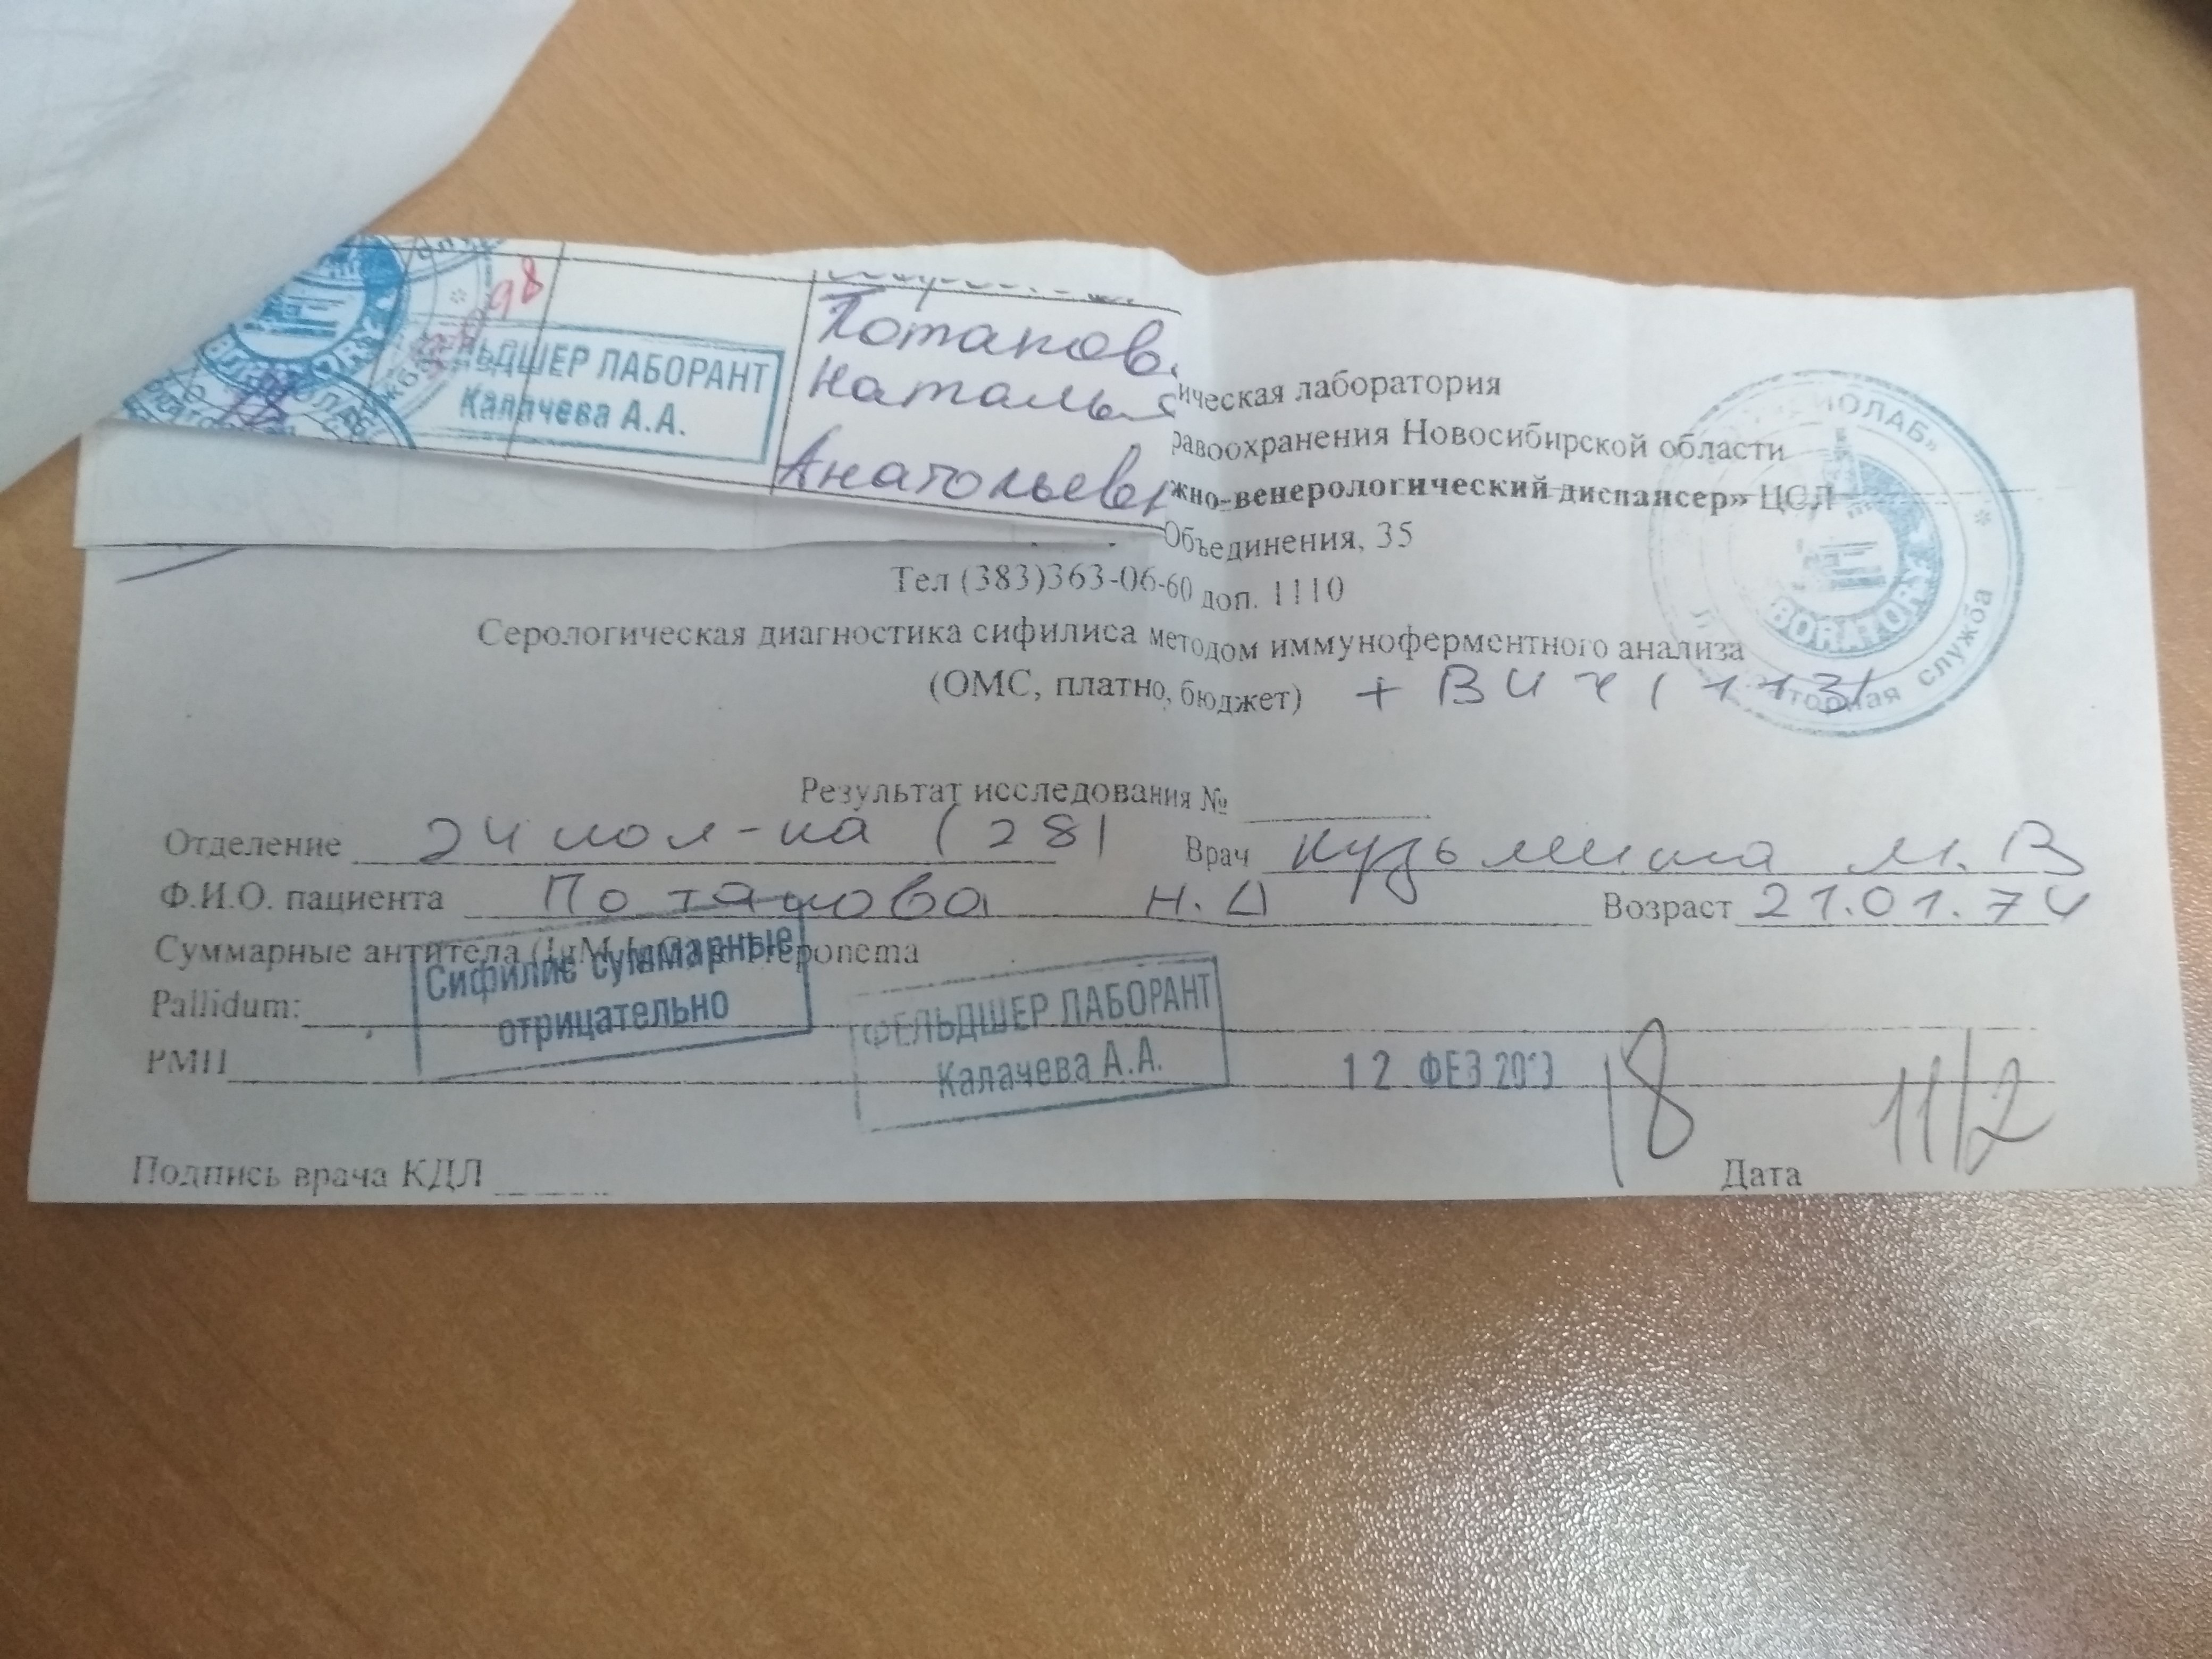 98
ФЕЛЬДШЕР ЛАБОРАНТ
Калачева А.А.
Потапов
Наталья
Анатольев
ическая лаборатория
равоохранения Новосибирской области
жно-венерологический диспансер» ЦСЛ
Объединения, 35
Тел (383)363-06-60 доп. 1110
Серологическая диагностика сифилиса методом иммуноферментного анализа
(ОМС, платно, бюджет) + ВИЧ (113)
ОЛАБ»
BORATORY
торная служба
Результат исследования №
Отделение 24 пол-ка (28) Врач Кузьмина М. В
Ф.И.О. пациента Потапова Н. А Возраст 21.01.74
Суммарные антитела (IgM, IgG) к Treponema
Pallidum:
Сифилис суммарные
отрицательно
РМП
ФЕЛЬДШЕР ЛАБОРАНТ
Калачева А.А.
12 ФЕВ
18
11/2
Подпись врача КДЛ Дата